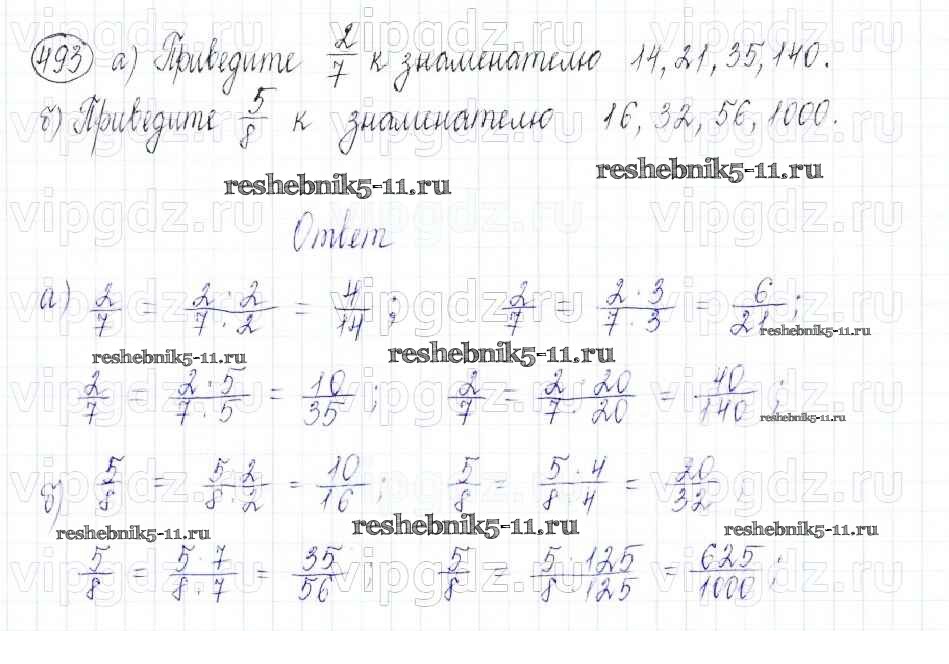 493 а) Приведите 2/7 к знаменателю 14, 21, 35, 140.
б) Приведите 5/8 к знаменателю 16, 32, 56, 1000.
reshebnik5-11.ru reshebnik5-11.ru
vipgdz.ru vipgdz.ru vipgdz.ru
Ответ
а) 2/7 = 2·2/7·2 = 4/14; 2/7 = 2·3/7·3 = 6/21;
reshebnik5-11.ru reshebnik5-11.ru reshebnik5-11.ru
2/7 = 2·5/7·5 = 10/35; 2/7 = 2·20/7·20 = 40/140;
reshebnik5-11.ru
б) 5/8 = 5·2/8·2 = 10/16; 5/8 = 5·4/8·4 = 20/32;
reshebnik5-11.ru reshebnik5-11.ru reshebnik5-11.ru
5/8 = 5·7/8·7 = 35/56; 5/8 = 5·125/8·125 = 625/1000;